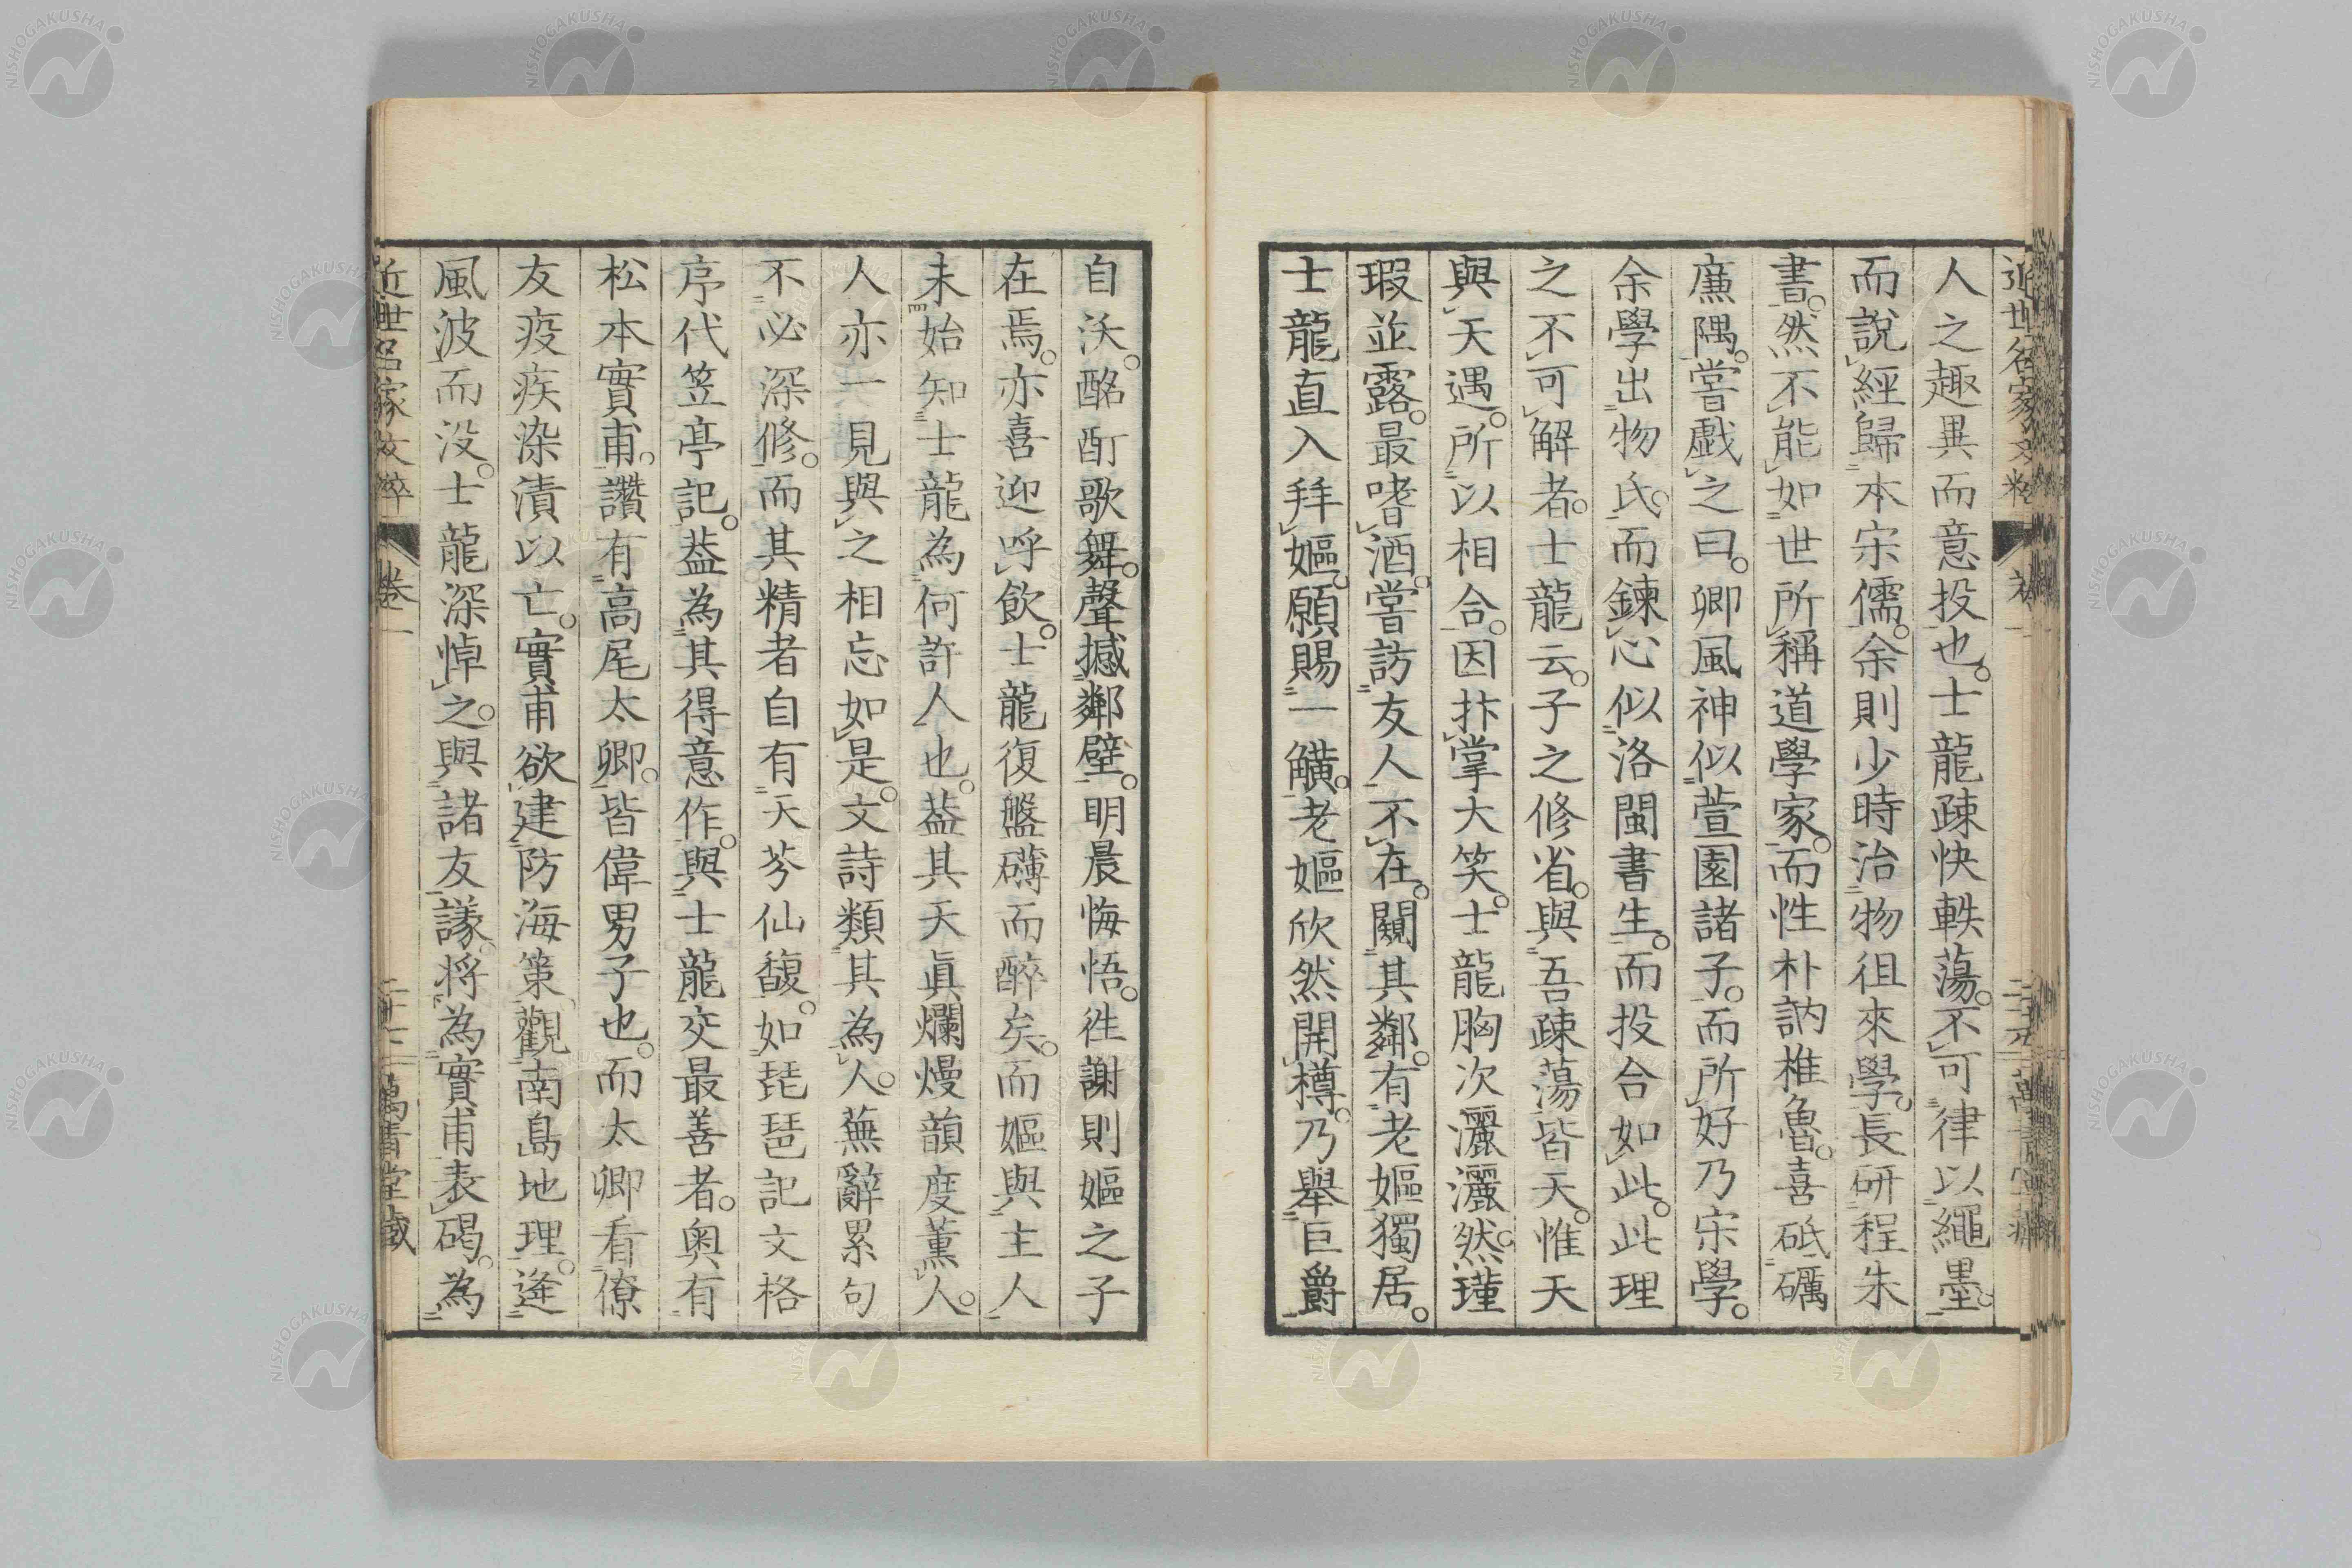 人之趣異而意投也。士龍疎快軼蕩。不可律以繩墨。
而說經歸本宋儒。余則少時治物徂來學。長研程朱
書。然不能如世所稱道學家。而性朴訥椎魯。喜砥礪
廉隅。嘗戲之曰。卿風神似萱園諸子。而所好乃宋學。
余學出物氏。而鍊心似洛閩書生。而投合如此。此理
之不可解者。士龍云。子之修省。與吾疎蕩皆天。惟天
與天遇。所以相合。因抃掌大笑。士龍胸次灑灑然。瑾
瑕並露。最嗜酒。嘗訪友人不在。闚其鄰。有老嫗獨居。
士龍直入拜嫗。願賜一觥。老嫗欣然開樽。乃舉巨爵
自沃。酩酊歌舞。聲撼鄰壁。明晨悔悟。往謝則嫗之子
在焉。亦喜迎呼飲。士龍復盤礴而醉矣。而嫗與主人
未始知士龍為何許人也。蓋其天眞爛熳韻度薰人。
人亦一見與之相忘如是。文詩類其為人。蕪辭累句
不必深修。而其精者自有天芬仙馥。如琵琶記文格
序代笠亭記。蓋為其得意作。與士龍交最善者。奥有
松本實甫。讚有高尾太卿。皆偉男子也。而太卿看僚
友疫疾染漬以亡。實甫欲建防海策。觀南島地理。逢
風波而没。士龍深悼之。與諸友議。将為實甫表碣。為
近世名家文粹
卷一
近世名家文粹
卷一
萬青堂藏
NISHOGAKUSHA